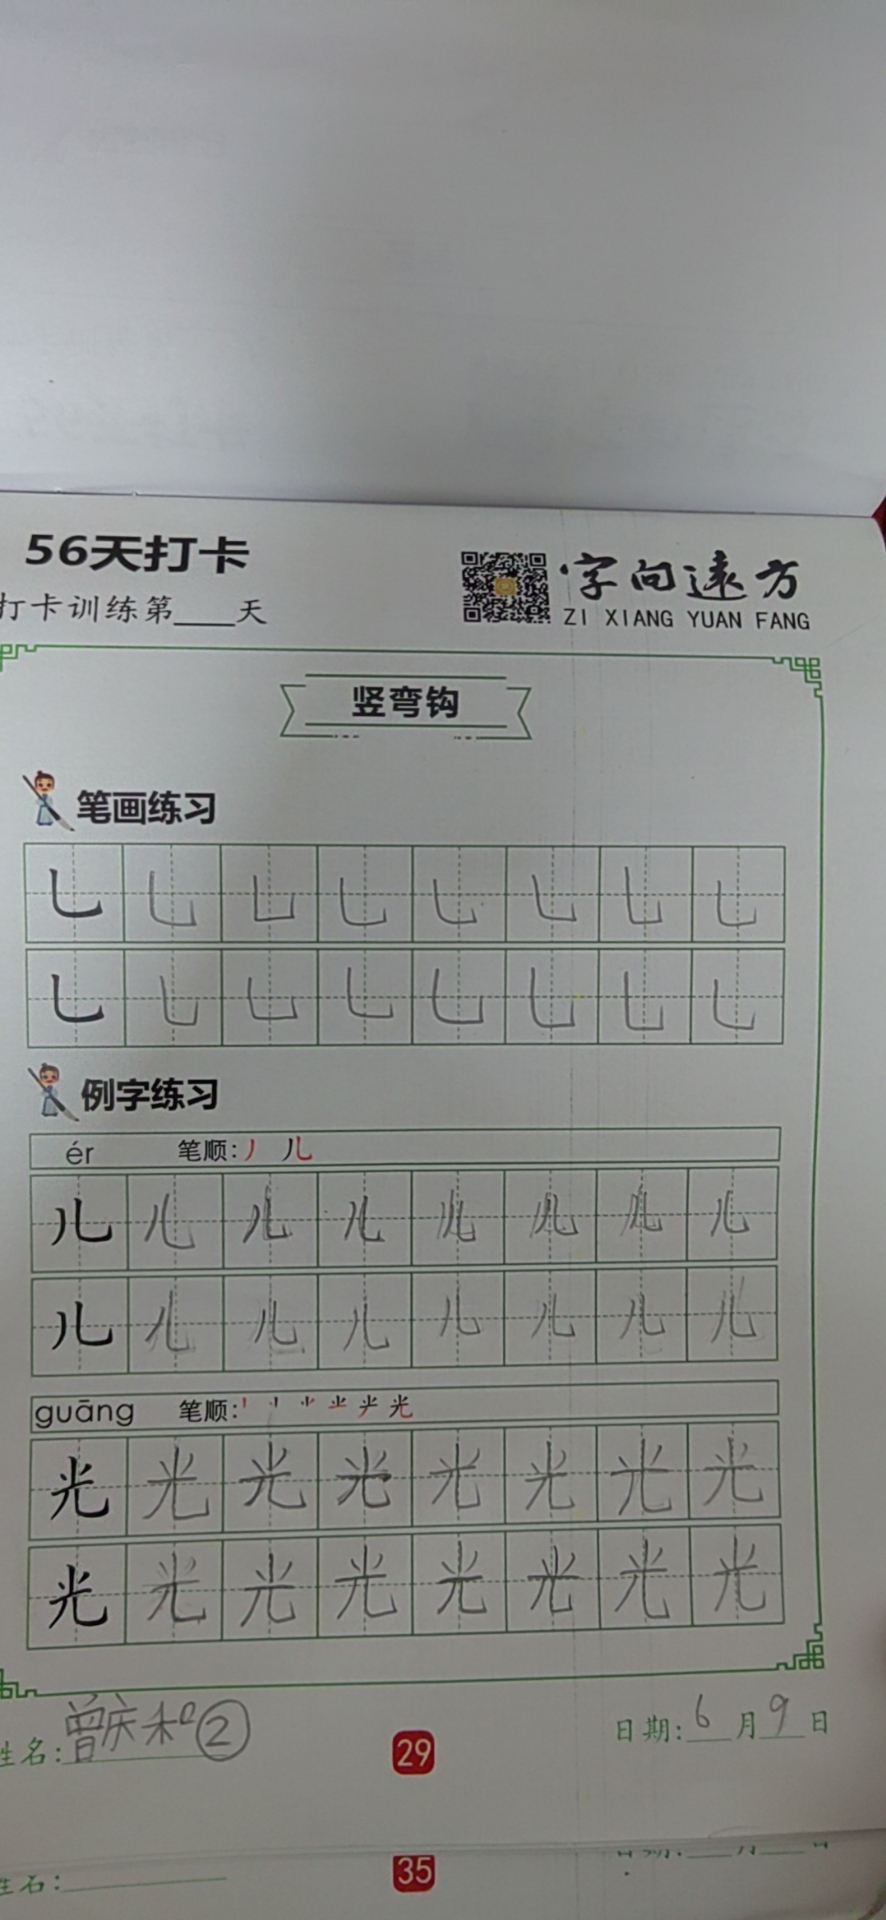 56天打卡
打卡训练第____天
字向远方
ZI XIANG YUAN FANG
竖弯钩
笔画练习
乚 乚 乚 乚 乚 乚 乚 乚
乚 乚 乚 乚 乚 乚 乚 乚
例字练习
ér 笔顺:丿 儿
儿 儿 儿 儿 儿 儿 儿 儿
儿 儿 儿 儿 儿 儿 儿 儿
guāng 笔顺: 光
光 光 光 光 光 光 光 光
光 光 光 光 光 光 光 光
姓名:曾庆和②
29
日期:6月9日
姓名:
35